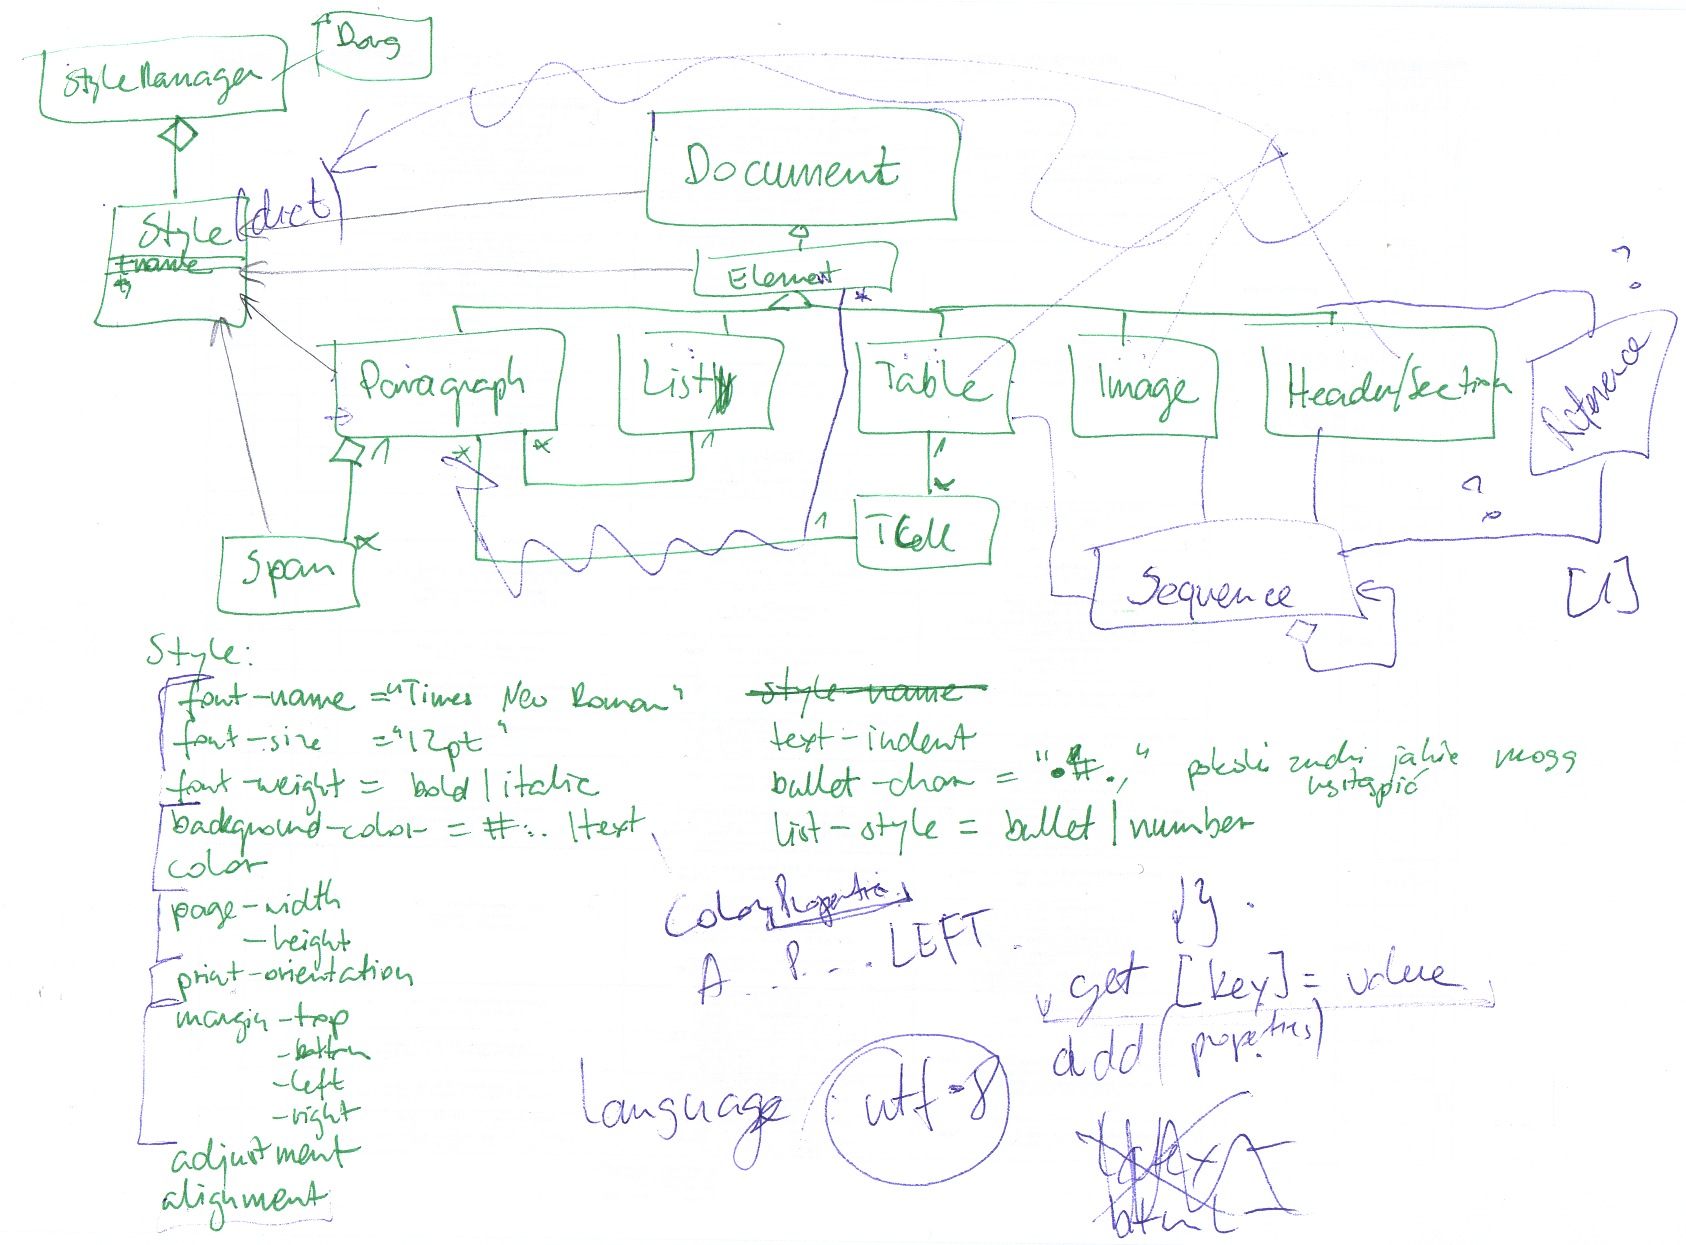 StyleManager
Document
Style (dict)
+name
Element
*
Paragraph
List
Table
Image
Header/Section
Reference
?
1
*
*
1
1
*
1
*
TCell
Span
Sequence
?
[1]
Style:
font-name ="Times New Roman"
font-size ="12pt"
font-weight = bold | italic
background-color = #... | text
color
page-width
-height
print-orientation
margin-top
-bottom
-left
-right
adjustment
alignment
style-name
text-indent
bullet-char =
list-style = bullet | number
ColorProperties
A... P.... LEFT
get [key] = value
add (properties)
Language utf-8
html